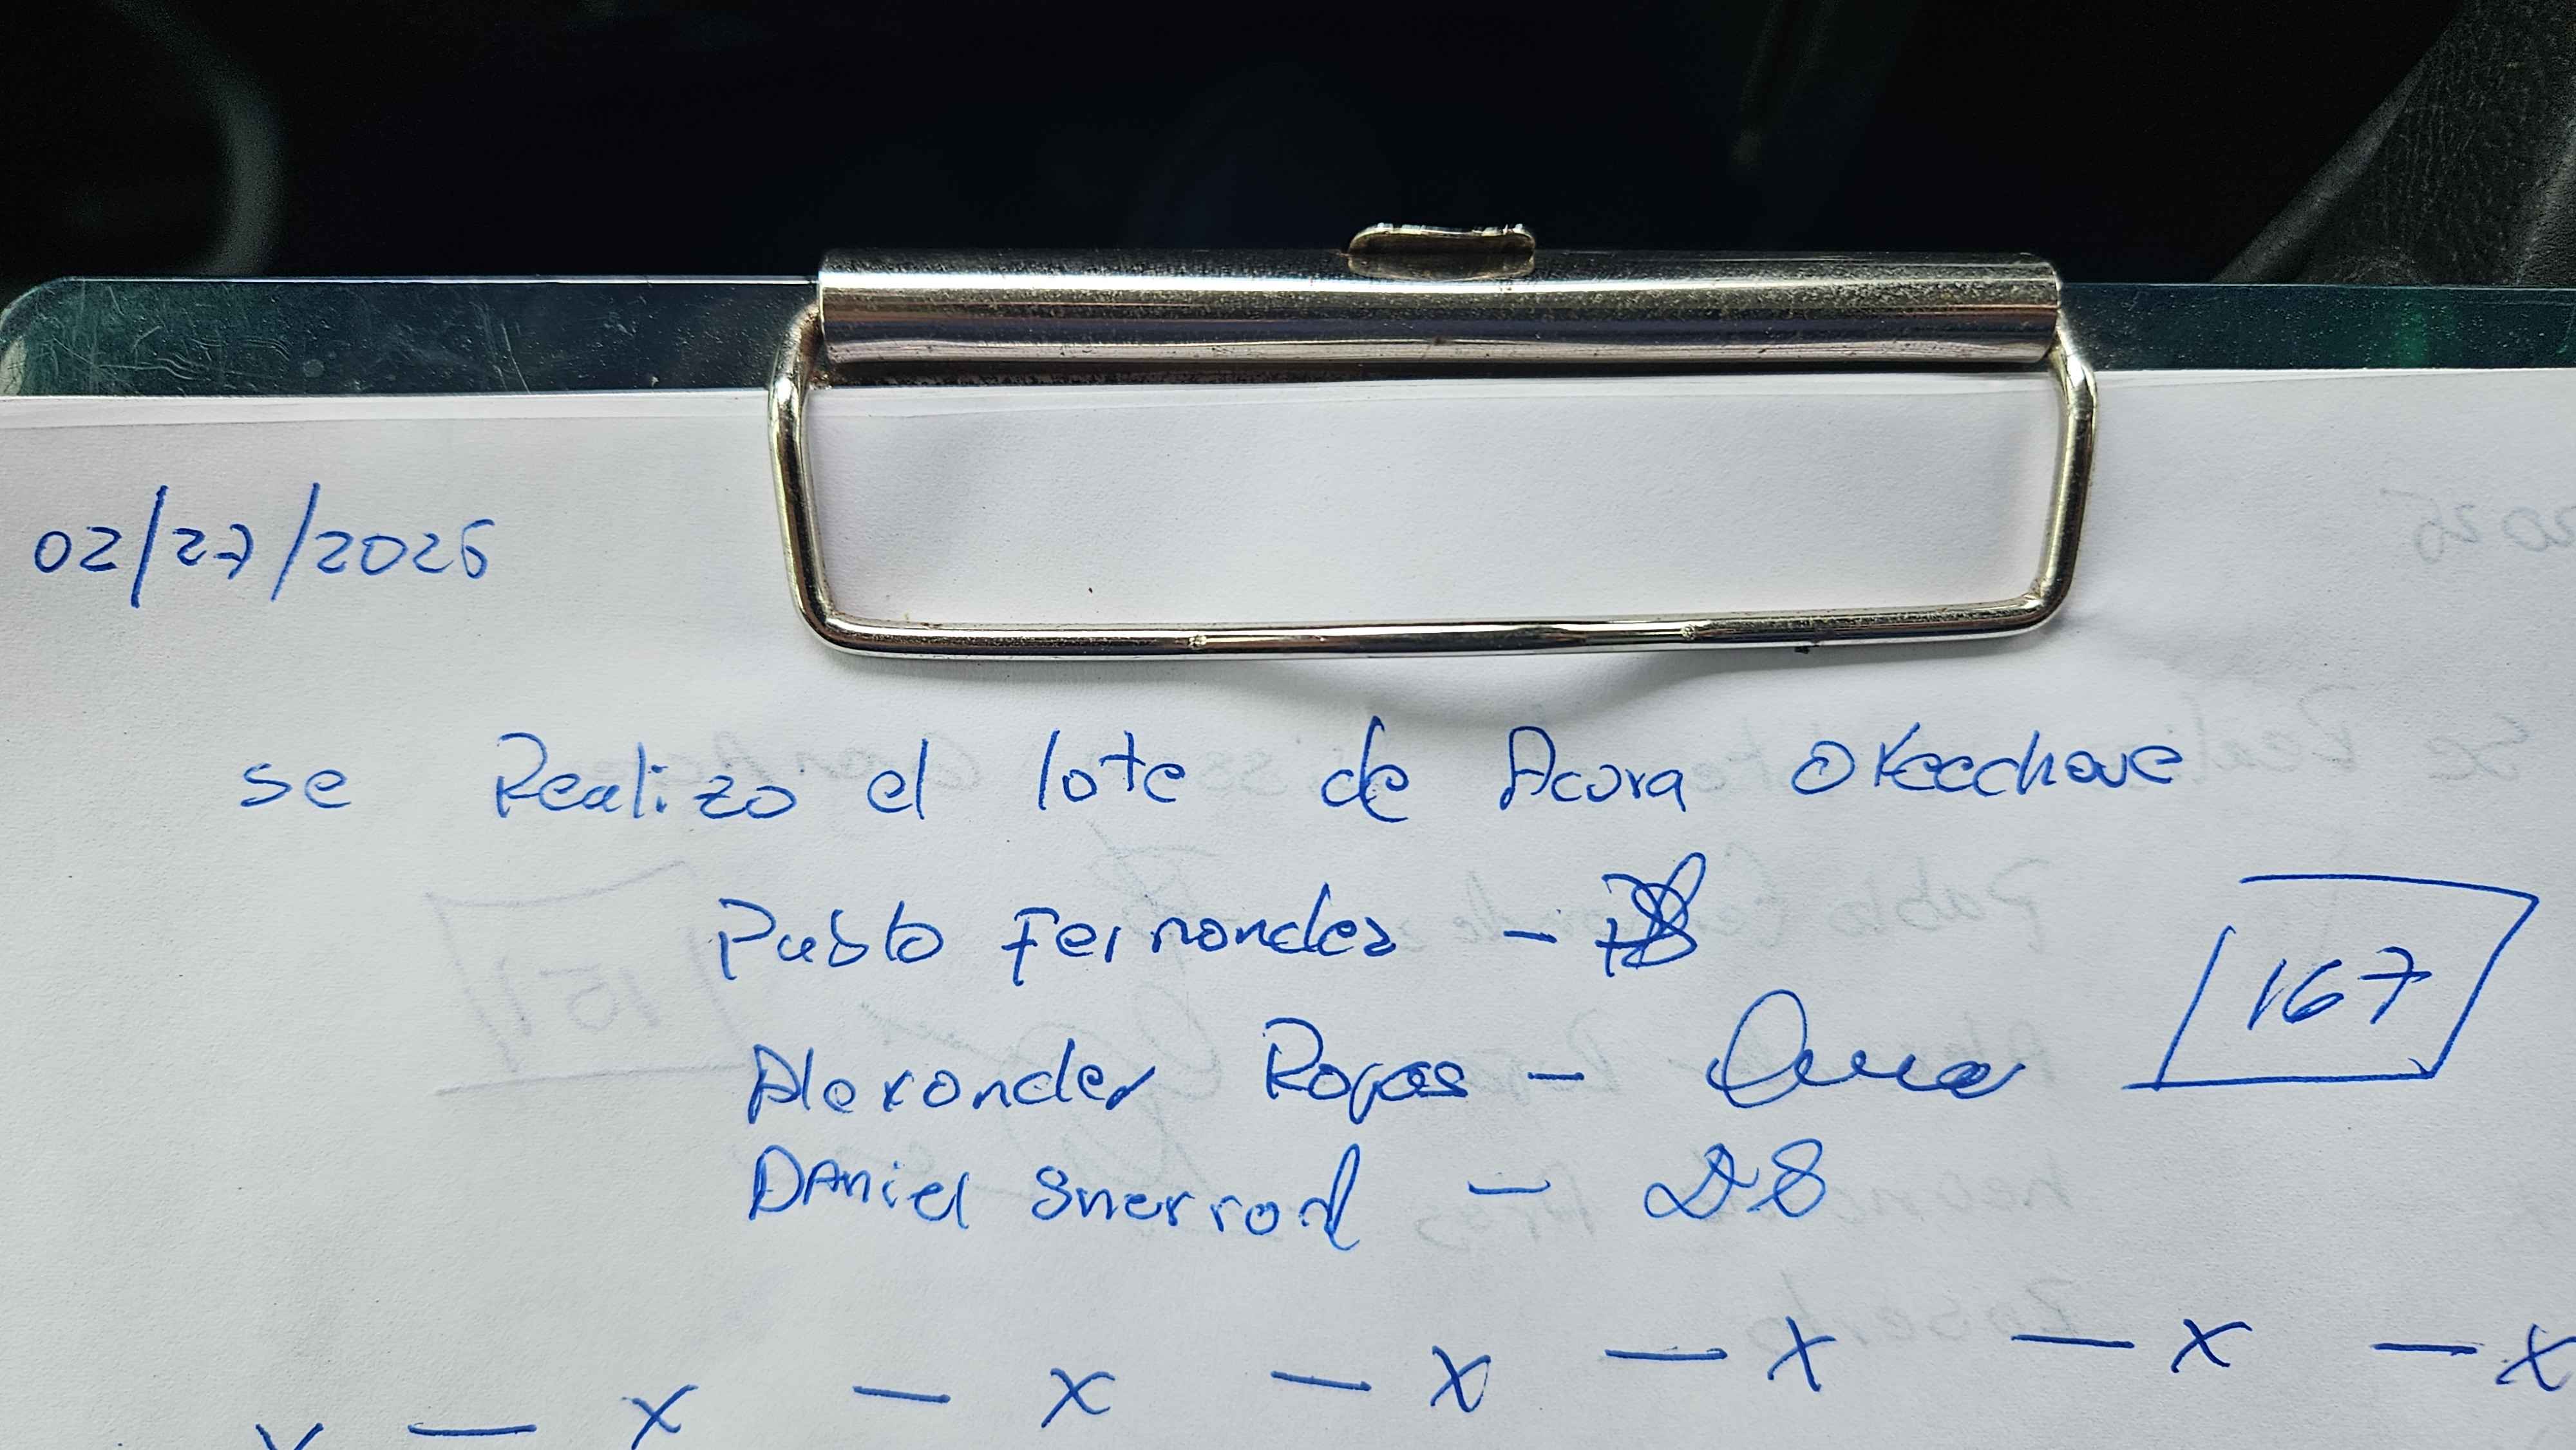 02/27/2026
se Realizo el lote de Acura Okeechove
Pablo Fernandez -
Alexander Rojas -
167
Daniel Sherrod - DS
x - x - x - x - x - x - x